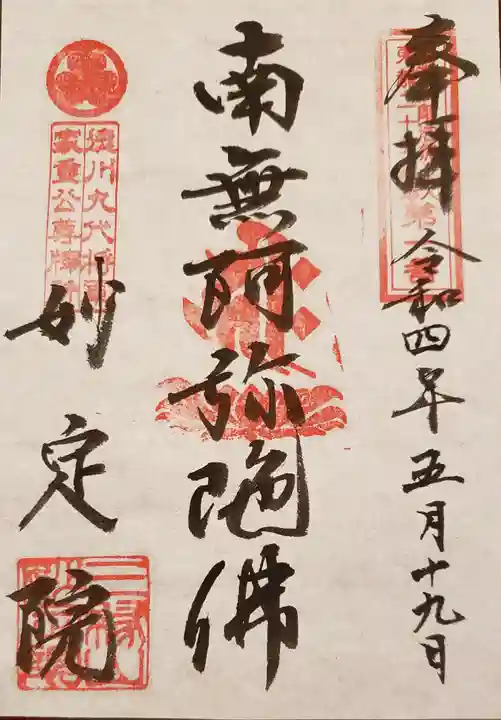 奉拝 令和四年五月十九日
南無阿弥陀佛
徳川九代将軍
家重公尊牌
妙定院